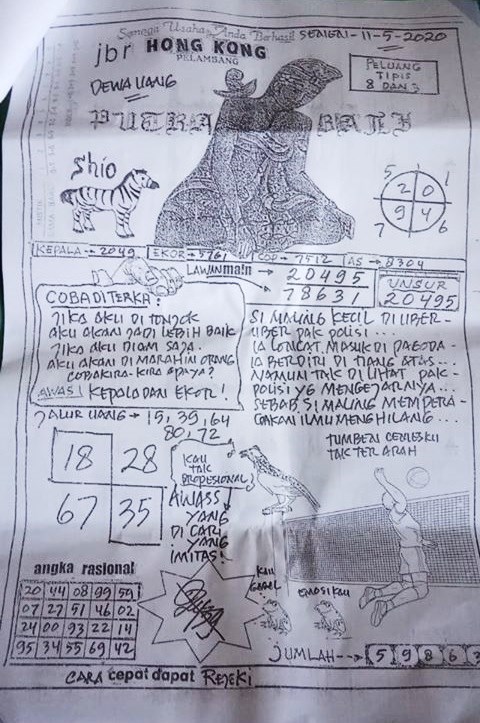 Semoga Usaha Anda Berhasil SENEN-11-5-2020
jbr HONG KONG
PELAMBANG
PELUANG
TIPIS
8 DAN 3
DEWA UANG
PUTRA BATH
Shio
5 1
2 0
9 4
7 6
KEPALA → 2049 EKOR → 5761 COP → 7512 AS → 8304
LAWAN main → 20495
78631
UNSUR
20495
COBA DITERKA :
JIKA AKU DI TONJOK
AKU AKAN JADI LEBIH BAIK
JIKA AKU DIAM SAJA
AKU AKAN DI MARAHIN ORANG
COBA KIRA-KIRA APAYA?
AWAS! KEPALA DAN EKOR!
SI MALING KECIL DI UBER-
UBER PAK POLISI ...
IA LONCAT MASUK DI PAGODA-
IA BERDIRI DI TIANG ATAS..
NAMUN TAK DI LIHAT PAK-
POLISI YG MENGEJARNYA...
SEBAB SI MALING MEMPERA-
GAKAN ILMU MENGHILANG ...
JALUR UANG → 15, 39, 64
80, 72
TUMBEN
TAK TER ARAH
18 28
67 35
KAU
TAK
PROPESIONAL
AWASS
YANG
DI CARI
YANG
IMITASI
angka rasional
20 44 08 99 59
07 27 51 46 02
24 00 93 22 14
95 34 55 69 42
KAU
GAGAL
EMOSI KAU
JUMLAH → 5 9 8 6 3
CARA cepat dapat REJEKI